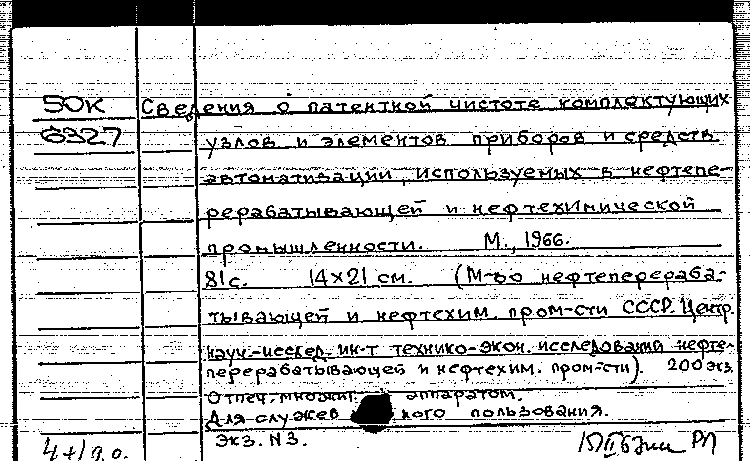 50К Сведения о патентной чистоте комплектующих
6327 узлов и элементов приборов и средств
автоматизации, используемых в нефтепе-
рерабатывающей и нефтехимической
промышленности. М., 1966.
81с. 14×21 см. (М-во нефтеперераба-
тывающей и нефтехим. пром-сти СССР. Центр.
науч.-исслед. ин-т технико-экон. исследований нефте-
перерабатывающей и нефтехим. пром-сти). 200 экз.
Отпеч. множит. аппаратом.
Для служеб ного пользования.
Экз. N3.